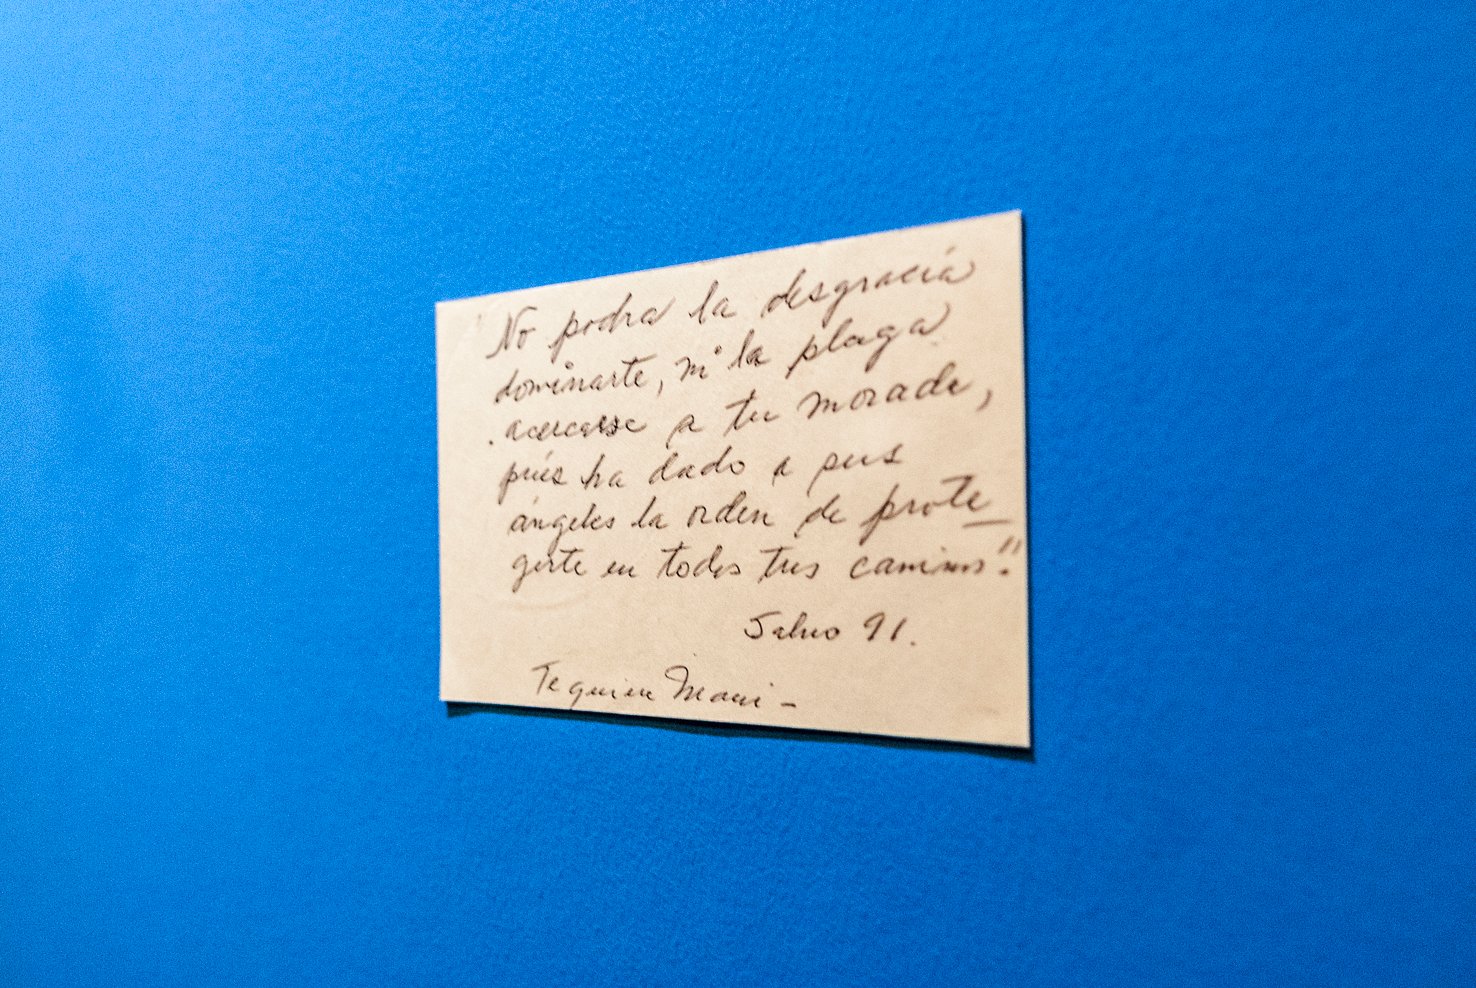 No podra la desgracia
dominarte, ni la plaga
acercarse a tu morada,
pués ha dado a sus
ángeles la orden de prote_
gerte en todos tus caminos."
Salmo 91.
Te quiere Mami -